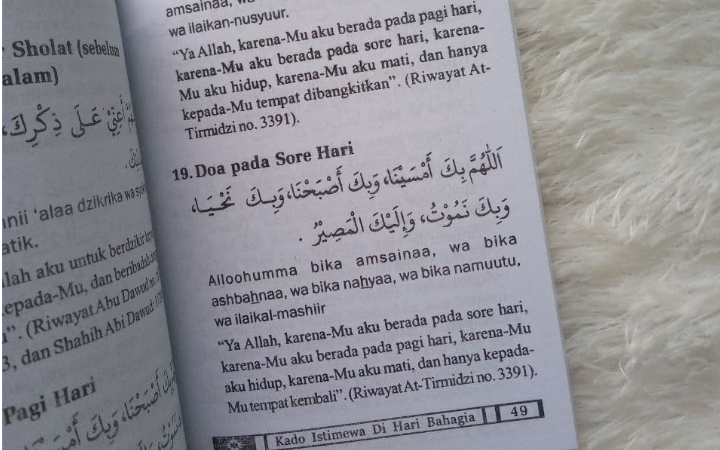 Sholat (sebelum
alam)
عَلَى ذِكْرِكَ،
nii 'alaa dzikrika wa
atik.
lah aku untuk berdzikir
epada-Mu, dan
(Riwayat Abu Dawud
3, dan Shahih Abi Dawud:
Pagi Hari
amsainaa, wa
wa ilaikan-nusyuur.
“Ya Allah, karena-Mu aku berada pada pagi hari,
karena-Mu aku berada pada sore hari, karena-
Mu aku hidup, karena-Mu aku mati, dan hanya
kepada-Mu tempat dibangkitkan”. (Riwayat At-
Tirmidzi no. 3391).
19. Doa pada Sore Hari
اَللّٰهُمَّ بِكَ أَمْسَيْنَا، وَبِكَ أَصْبَحْنَا، وَبِكَ نَحْيَا،
وَبِكَ نَمُوْتُ، وَإِلَيْكَ الْمَصِيْرُ .
Alloohumma bika amsainaa, wa bika
ashbahnaa, wa bika nahyaa, wa bika namuutu,
wa ilaikal-mashiir
“Ya Allah, karena-Mu aku berada pada sore hari,
karena-Mu aku berada pada pagi hari, karena-Mu
aku hidup, karena-Mu aku mati, dan hanya kepada-
Mu tempat kembali”. (Riwayat At-Tirmidzi no. 3391).
Kado Istimewa Di Hari Bahagia 49